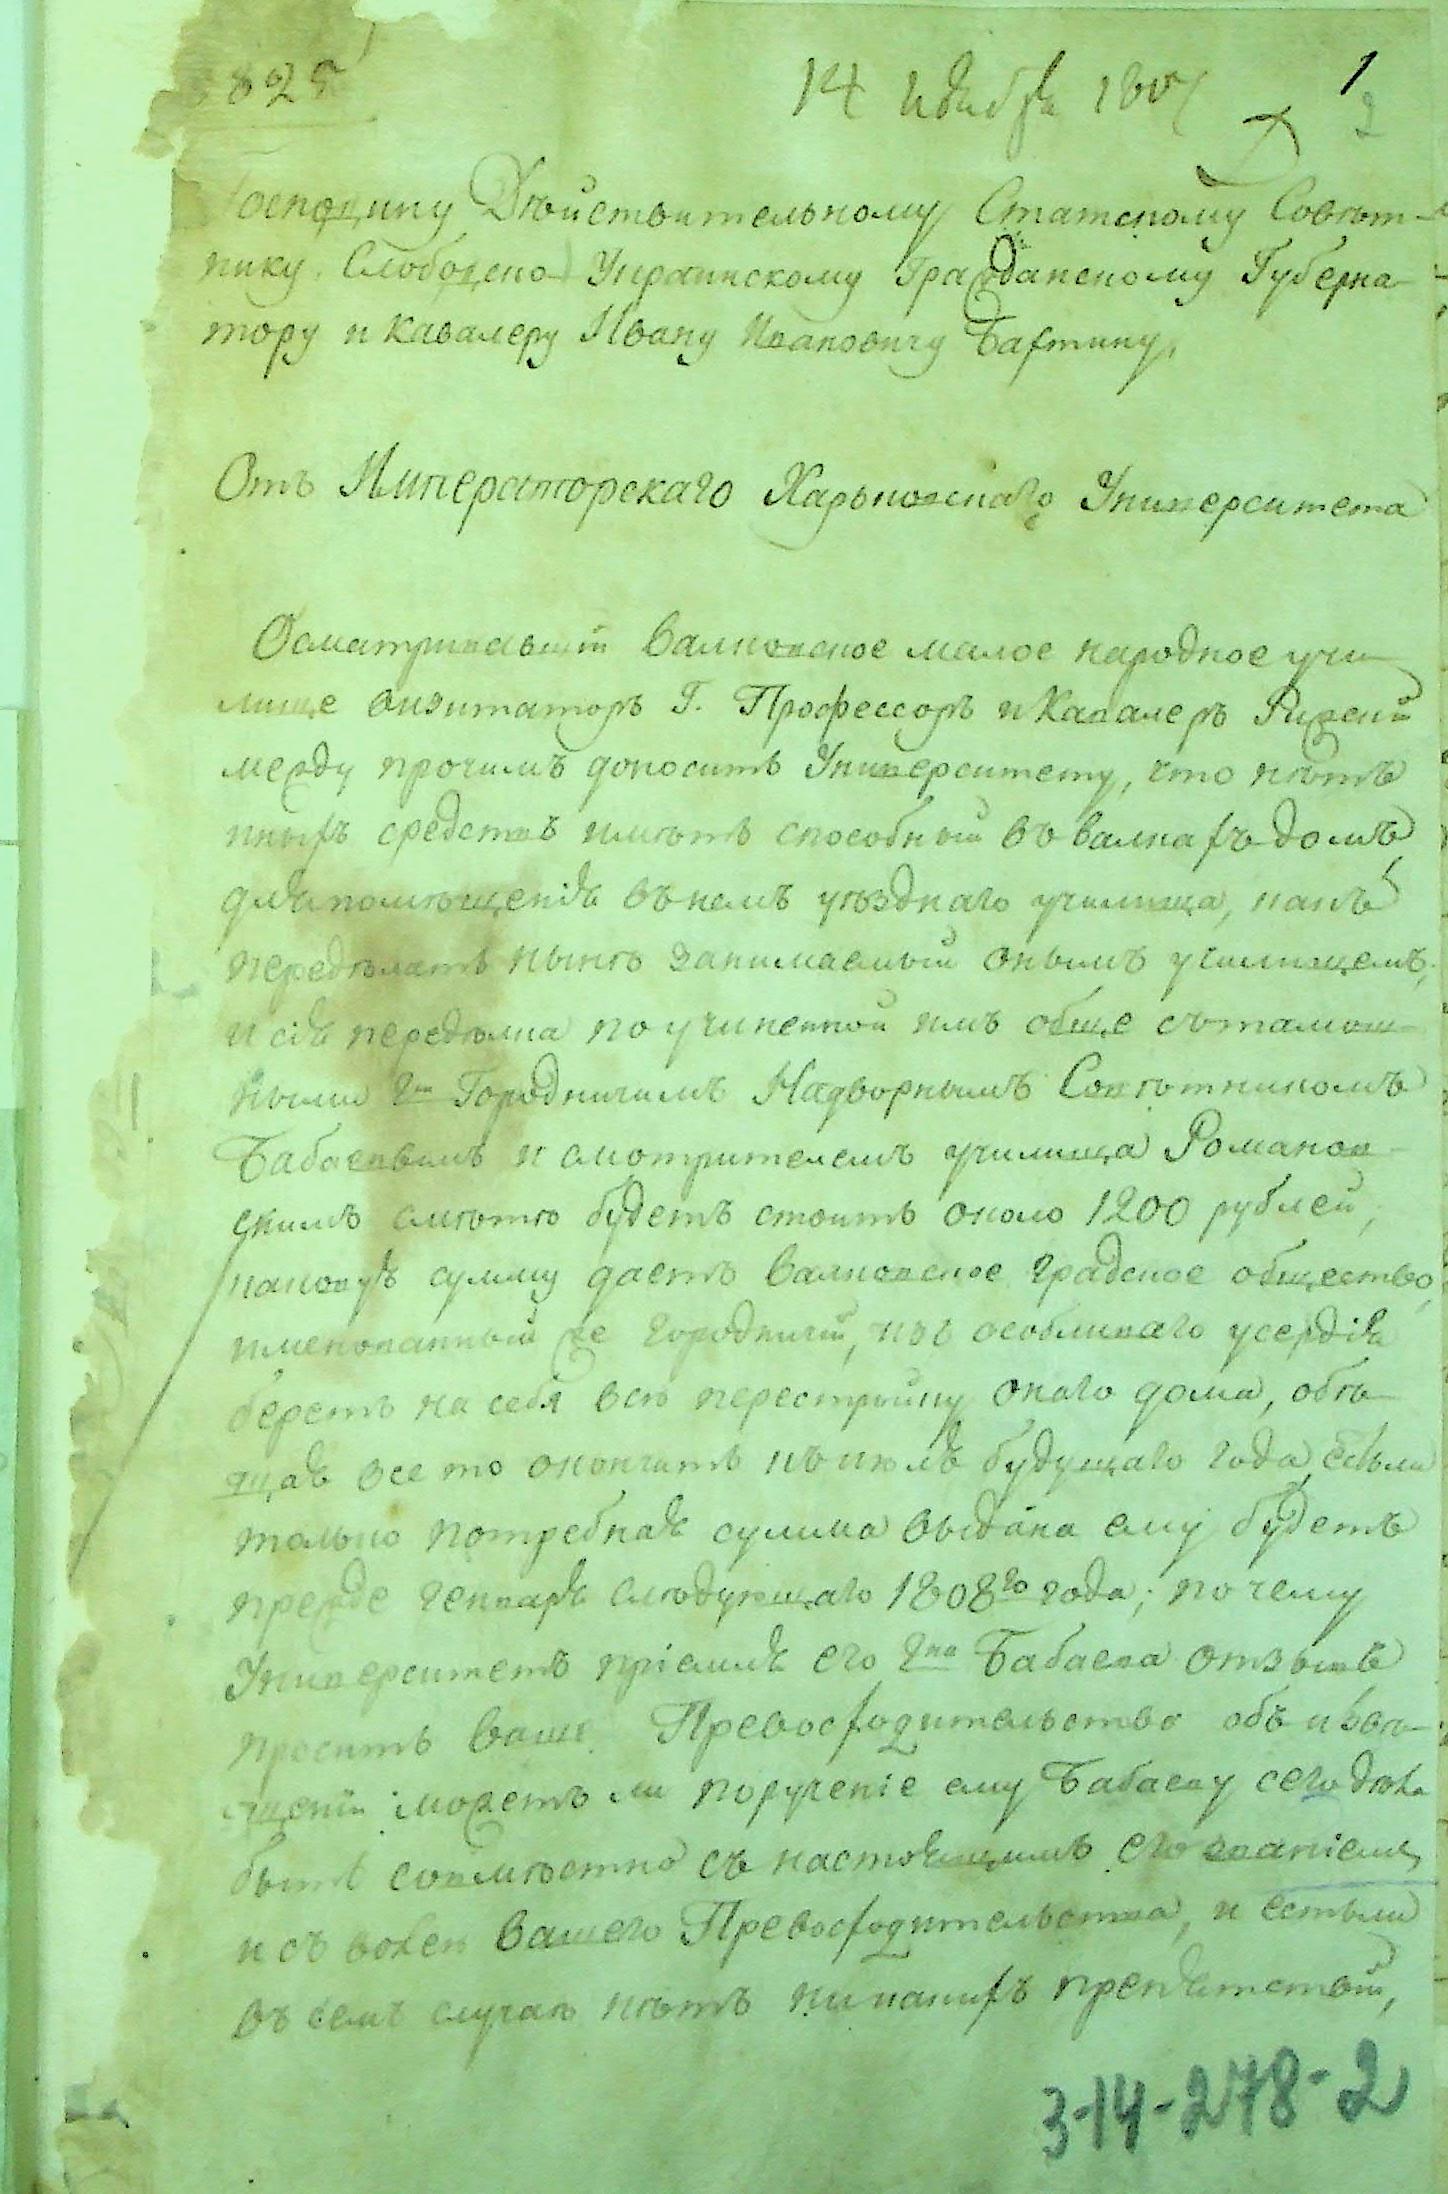 825
14 Ноября 1807
1
2
Господину Дѣйствительному Статскому Совѣт-
нику Слободско Украинскому Гражданскому Губерна-
тору и кавалеру Ивану Ивановичу Бахтину,
Отъ Императорскаго Харьковскаго Университета
Осматривавшій Валковское малое народное учи-
лище визитаторъ Г. Профессоръ и Кавалеръ Рижскій
между прочимъ доноситъ Университету, что нѣтъ
иныхъ средствъ имѣть способный въ валкахъ домъ
для помѣщенія въ немъ уѣзднаго училища, какъ
передѣлать нынѣ занимаемый онымъ училищемъ,
и сія передѣлка по учиненной имъ обще сътамош-
ными Гм Городничимъ Надворнымъ Совѣтникомъ
Бабаевымъ и смотрителемъ училища Романов-
скимъ смѣтѣ будетъ стоить около 1200 рублей,
каковую сумму даетъ Валковское градское общество,
именованный же городничій, изъ особливаго усердія
беретъ на себя всю перестройку онаго дома, обѣ-
щая все то окончить къ июлю будущаго года, естьли
только потребная сумма выдана ему будетъ
прежде генваря слѣдующаго 1808го года; по чему
Университетъ пріемля его Гна Бабаева отзывъ
проситъ Ваше Превосходительство объ извѣ-
щеніи можетъ ли порученіе ему Бабаеву сего дѣла
быть совмѣстно съ настоящимъ его званіемъ
и съ волею Вашего Превосходительства, и естьли
въ семъ случаѣ нѣтъ никакихъ препятствій,
3-14-278-2